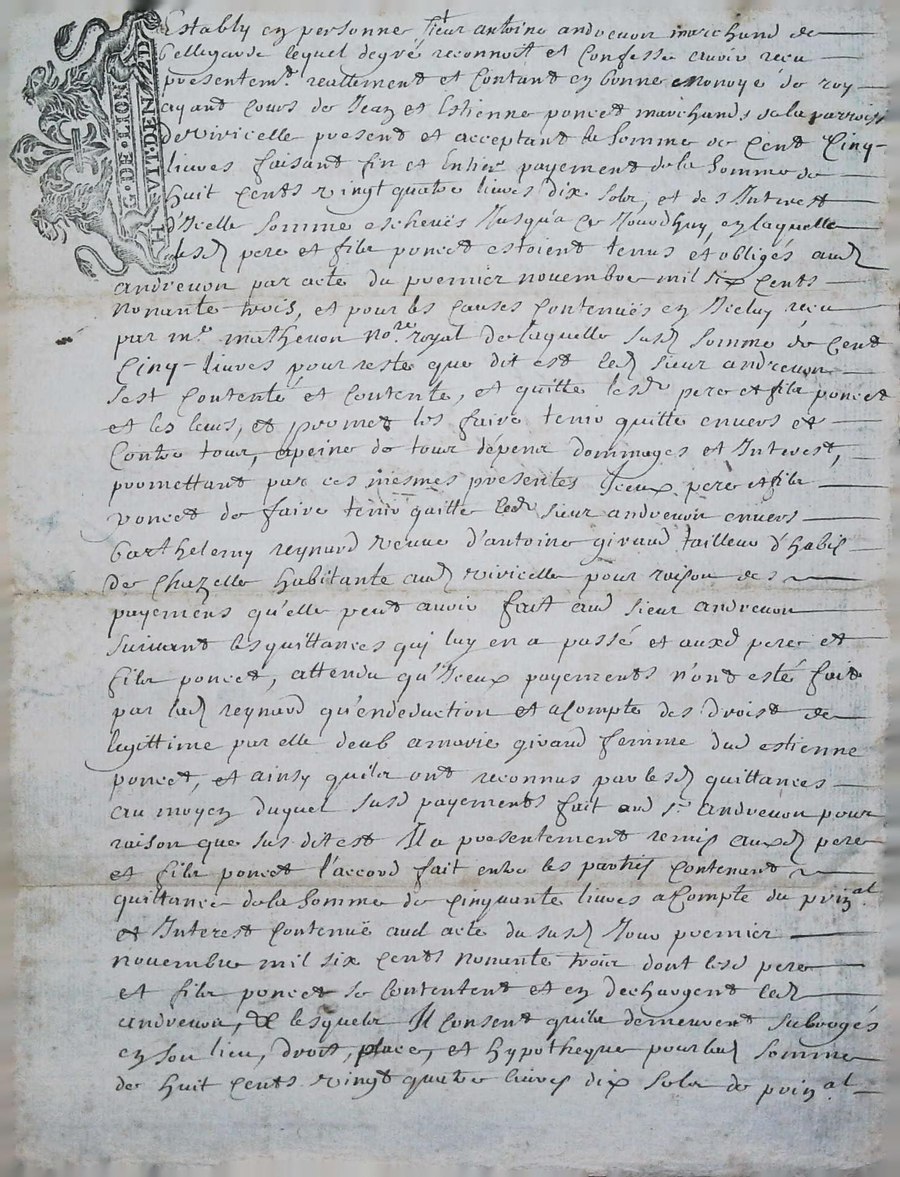 G. DE. LION
HVIT. DEN. 2 D
Estably en personne sieur antoine andrevon marchand de
bellegarde lequel degré reconnoit et Confesse avoir receu
presentemt. reallement et Contant en bonne monoye de roy
ayant Cours de Jean et Estienne poncet marchands de la parroisse
de vivicelle present et acceptant la somme de Cent Cinq
livres faisant fin et Entier payement de la somme de
huit Cents vingt quatre livres dix sols, et des Interest
d'Icelle somme escheües Jusqua ce Jourdhuy, en laquelle
lesd pere et fils poncet estoient tenus et obligés aud
andrevon par acte du premier novembre mil six Cents
nonante trois, et pour les Causes Contenuës en Iceluy receu
par me. mathevon nore. royal de laquelle susd somme de Cent
Cinq livres pour reste que dit est led sieur andrevon
sest Contenté et Contente, et quitte lesd pere et fils poncet
et les leurs, et promet les faire tenir quitte envers et
Contre tous, apeine de tous dépens dommages et Interest,
promettant par ces mesmes presentes Iceux pere et fils
poncet de faire tenir quitte led sieur andrevon envers
barthelemy reynard veuve d'antoine giraud tailleur d'habis
de Chazelle habitante aud vivicelle pour raison des
payemens qu'elle peut avoir fait aud sieur andrevon
suivant les quittances qui luy en a passé et auxd pere et
fils poncet, attendu qu'Iceux payements n'ont esté fait
par lad reynard qu'en deduction et a Compte des droist de
legittime par elle deub a marie giraud femme dud estienne
poncet, et ainsy quils ont reconnus par lesd quittances
au moyen duquel susd payements fait aud sr. andrevon pour
raison que sus dit est Il a presentement remis auxd pere
et fils poncet l'accord fait entre les parties Contenant
quittance de la somme de Cinquante livres a Compte du prinal.
et Interest Contenuë aud acte du susd Jour premier
novembre mil six Cents nonante trois dont lesd pere
et fils poncet se Contentent et en dechargent led
andrevon, & lesquels Il Consent quils demeurent subrogés
en son lieu, droit, place, et hypotheque pour lad somme
de huit Cents vingt quatre livres dix sols de prinal.